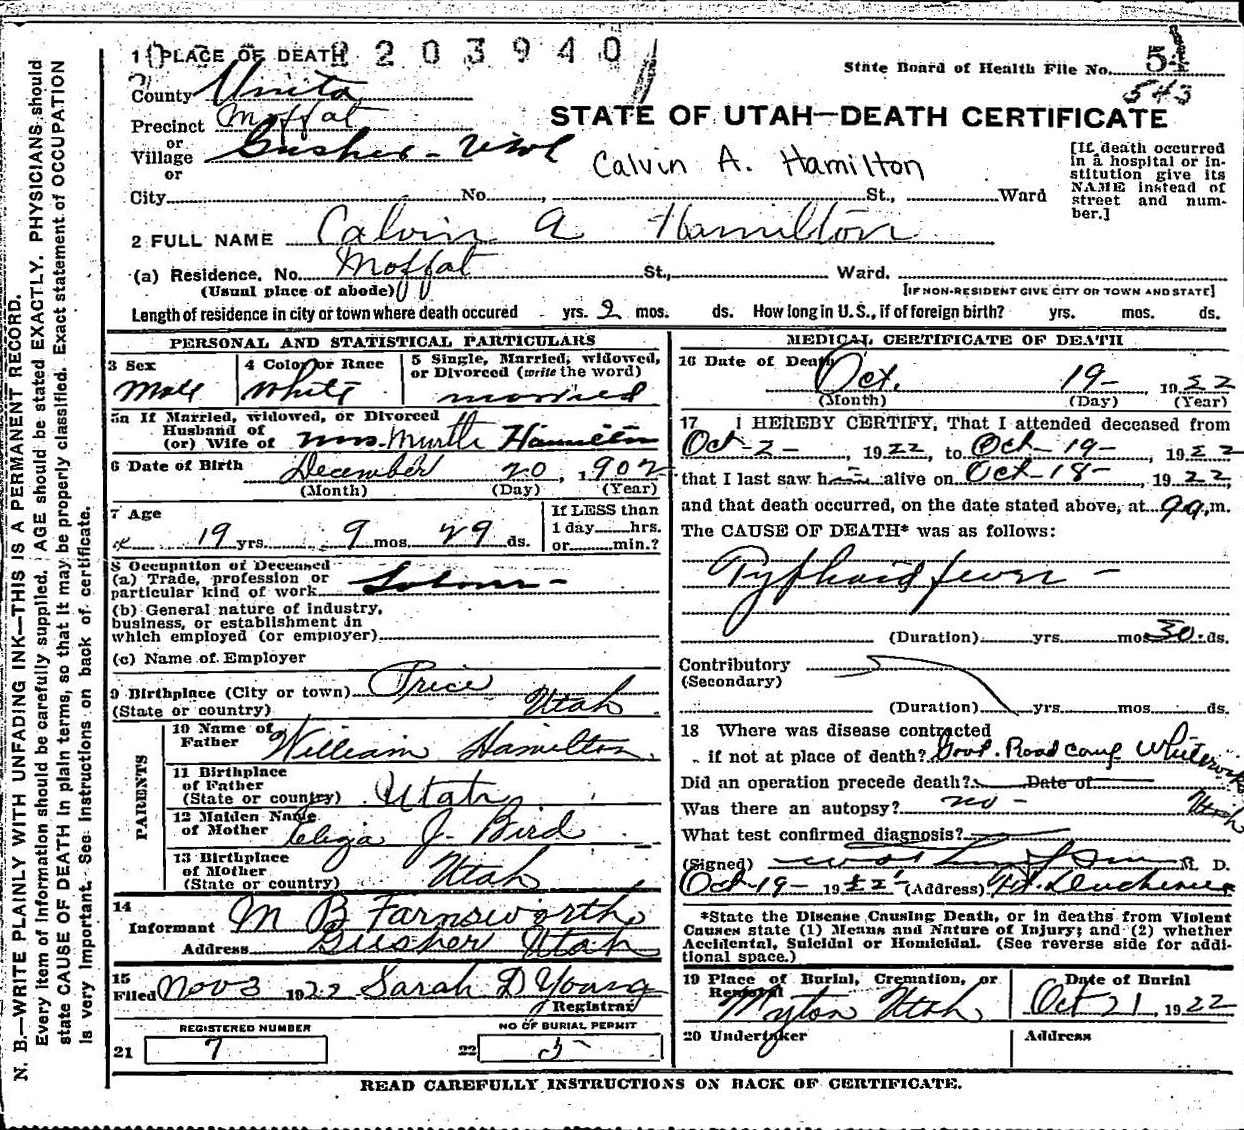 1 PLACE OF DEATH 2203940
State Board of Health File No. 51
543
County Unita
STATE OF UTAH—DEATH CERTIFICATE
Precinct Moffat
or
Village Gusher -
or
Calvin A. Hamilton
[If death occurred in a hospital or institution give its NAME instead of street and number.]
City No. , St., Ward
2 FULL NAME Calvin A Hamilton
(a) Residence. No. Moffat St., Ward.
(Usual place of abode) [IF NON-RESIDENT GIVE CITY OR TOWN AND STATE]
Length of residence in city or town where death occured yrs. 2 mos. ds. How long in U.S., if of foreign birth? yrs. mos. ds.
PERSONAL AND STATISTICAL PARTICULARS
3 Sex 4 Color or Race 5 Single, Married, widowed, or Divorced (write the word)
Male White married
5a If Married, widowed, or Divorced
Husband of
(or) Wife of Mrs. Murtle Hamilton
6 Date of Birth December 20, 1902
(Month) (Day) (Year)
7 Age If LESS than
1 day hrs.
19 yrs. 9 mos 29 ds. or min.?
8 Occupation of Deceased
(a) Trade, profession or
particular kind of work
(b) General nature of industry,
business, or establishment in
which employed (or employer)
(c) Name of Employer
9 Birthplace (City or town) Price
(State or country) Utah
PARENTS
10 Name of
Father William Hamilton
11 Birthplace
of Father
(State or country) Utah
12 Maiden Name
of Mother Eliza J. Bird
13 Birthplace
of Mother
(State or country) Utah
14
Informant M B Farnsworth
Address Gusher Utah
15
Filed Nov 3 1922 Sarah D Young
Registrar
REGISTERED NUMBER NO OF BURIAL PERMIT
21 7 22 5
MEDICAL CERTIFICATE OF DEATH
16 Date of Death
Oct. 19- 1922
(Month) (Day) (Year)
17 I HEREBY CERTIFY, That I attended deceased from
Oct-2-, 1922, to Oct-19-, 1922
that I last saw h alive on Oct-18-, 1922,
and that death occurred, on the date stated above, at 9 a.m.
The CAUSE OF DEATH* was as follows:
Typhoid fever -
(Duration) yrs. mos 30. ds.
Contributory
(Secondary)
(Duration) yrs. mos. ds.
18 Where was disease contracted
if not at place of death? Govt. Road Camp Whiterocks
Utah
Did an operation precede death? Date of
Was there an autopsy? no -
What test confirmed diagnosis?
(Signed) M. D.
Oct-19- 1922 (Address) Ft. Duchesne
*State the Disease Causing Death, or in deaths from Violent
Causes state (1) Means and Nature of Injury; and (2) whether
Accidental, Suicidal or Homicidal. (See reverse side for addi-
tional space.)
19 Place of Burial, Cremation, or Removal Date of Burial
Myton Utah Oct 21, 1922
20 Undertaker Address
READ CAREFULLY INSTRUCTIONS ON BACK OF CERTIFICATE.
N. B.—WRITE PLAINLY WITH UNFADING INK—THIS IS A PERMANENT RECORD.
Every item of information should be carefully supplied. AGE should be stated EXACTLY. PHYSICIANS should
state CAUSE OF DEATH in plain terms, so that it may be properly classified. Exact statement of OCCUPATION
is very important. See instructions on back of certificate.